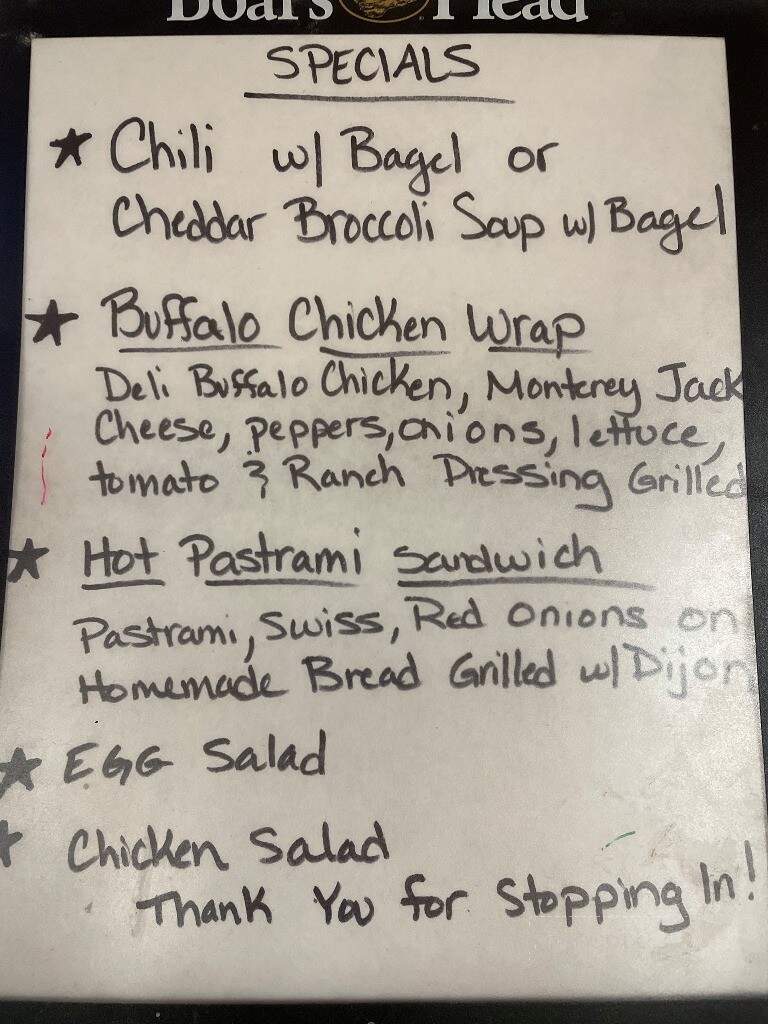 Boar's Head
SPECIALS
★ Chili w/ Bagel or
Cheddar Broccoli Soup w/ Bagel
★ Buffalo Chicken Wrap
Deli Buffalo Chicken, Monterey Jack
Cheese, peppers, onions, lettuce,
tomato & Ranch Dressing Grilled
★ Hot Pastrami Sandwich
Pastrami, Swiss, Red Onions on
Homemade Bread Grilled w/ Dijon
★ EGG Salad
★ Chicken Salad
Thank You for Stopping In!